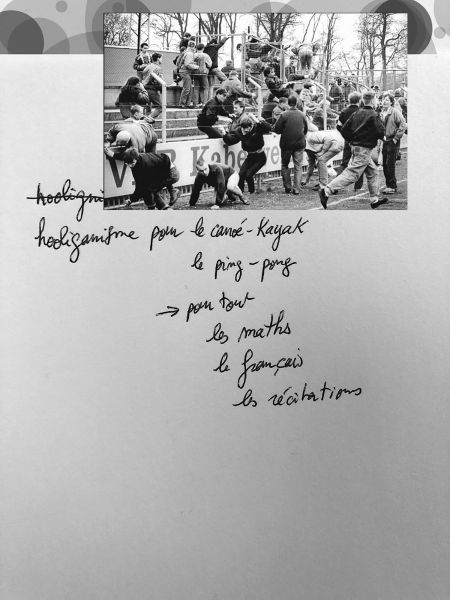 Kabelwe
hooligni
hooliganisme pour le canoé-Kayak
le ping-pong
→ pour tout
les maths
le français
les récitations